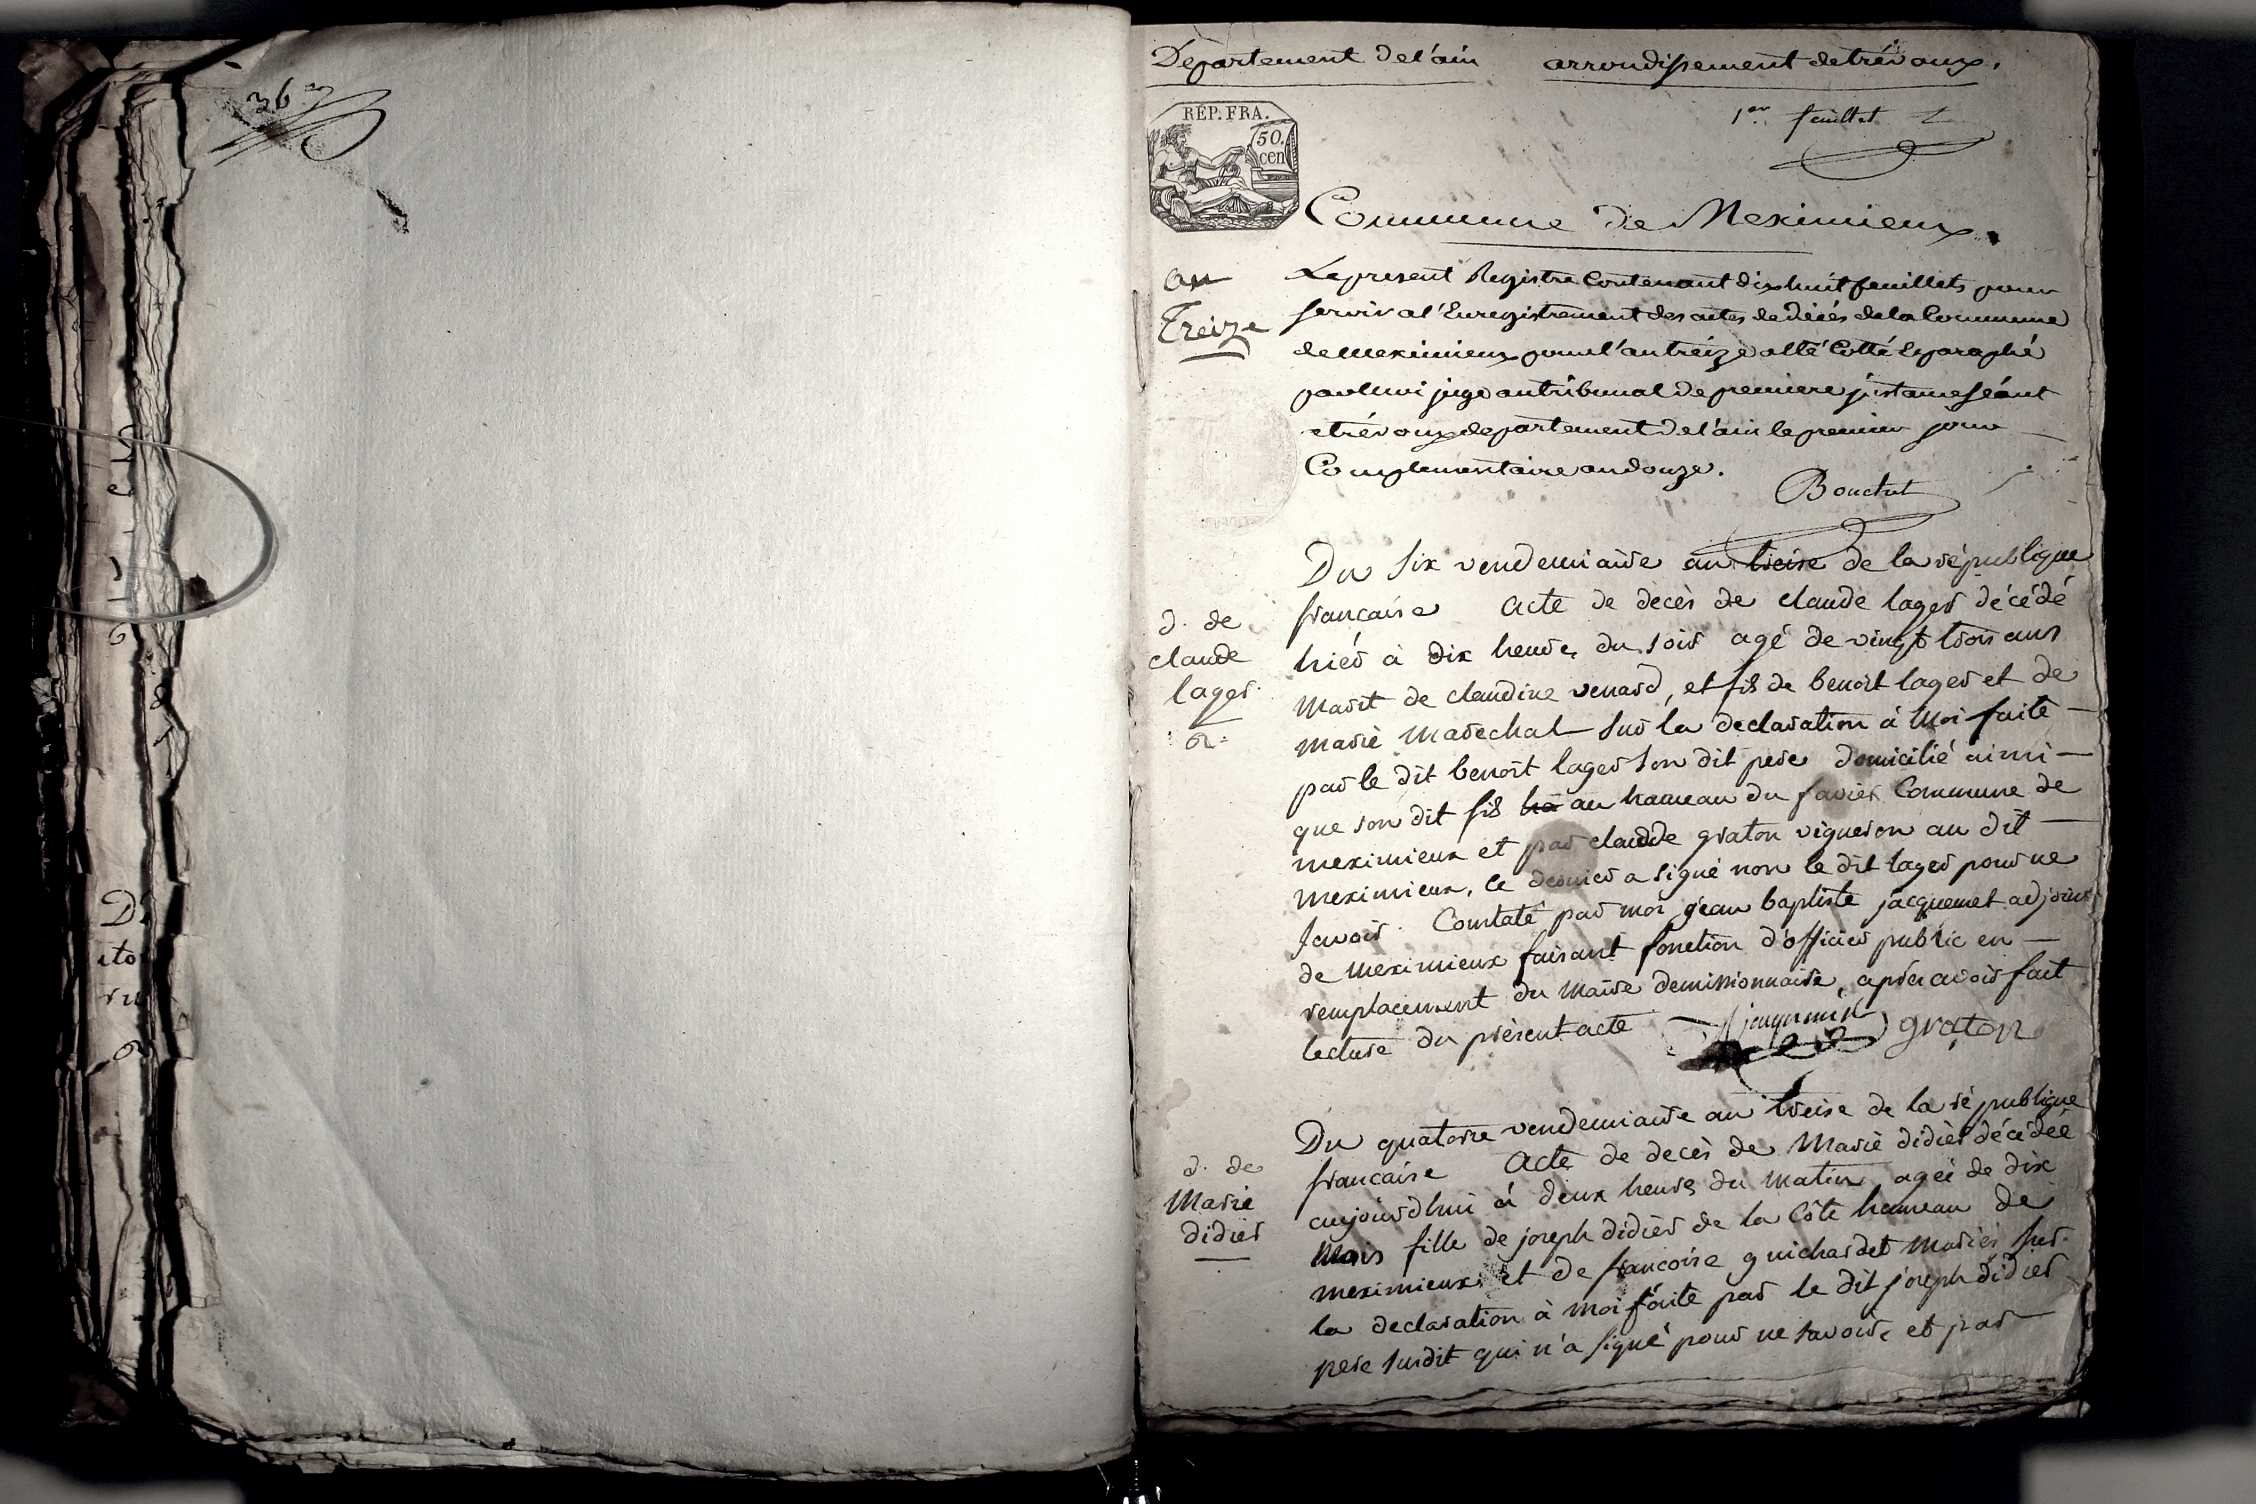 367
Departement de l'ain arrondissement de trévoux.
1er feuillet
RÉP. FRA.
50.
cen
Commune de Meximieux.
an
Treize
Le present Registre Contenant dix huit feuillets pour
servir a l'Enregistrement des actes de décés de la Commune
de Meximieux pour l'an treize a été Cotté & paraphé
par Nous juge au tribunal de premiere jnstance séant
a trévoux departement de l'ain le premier jour
Complementaire an douze.
d. de
claude
lager
Du six vendemiaire an treise de la république
francaise Acte de decès de claude lager décédé
hier à dix heures du soir agé de vingt trois ans
Marit de claudine venard, et fils de benoit lager et de
Marie Marechal sur la declaration à Moi faite
par le dit benoit lager son dit pere domicilié ainsi
que son dit fils au hameau du favier Commune de
meximieux et par claudde graton vigneron au dit
Meximieux, ce dernier a signé non le dit lager pour ne
savoir. Constaté par moi jean baptiste jacquemet adjoint
de Meximieux faisant fonction d'officier public en
remplacement du Maire demissionnaire, après avoir fait
lecture du présent acte
jacquemet graton
d. de
Marie
didier
Du quatorze vendemiaire an treise de la république
francaise Acte de decès de Marie didier décédée
aujourdhui à deux heures du matin agée de dix
Mois fille de joseph didier de la Côte hameau de
meximieux et de francoise guichardet mariés sur
la declaration à moi faite par le dit joseph didier
pere susdit qui n'a signé pour ne savoir et par